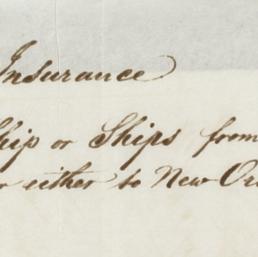 Insurance
Ship or Ships from
either to New Or